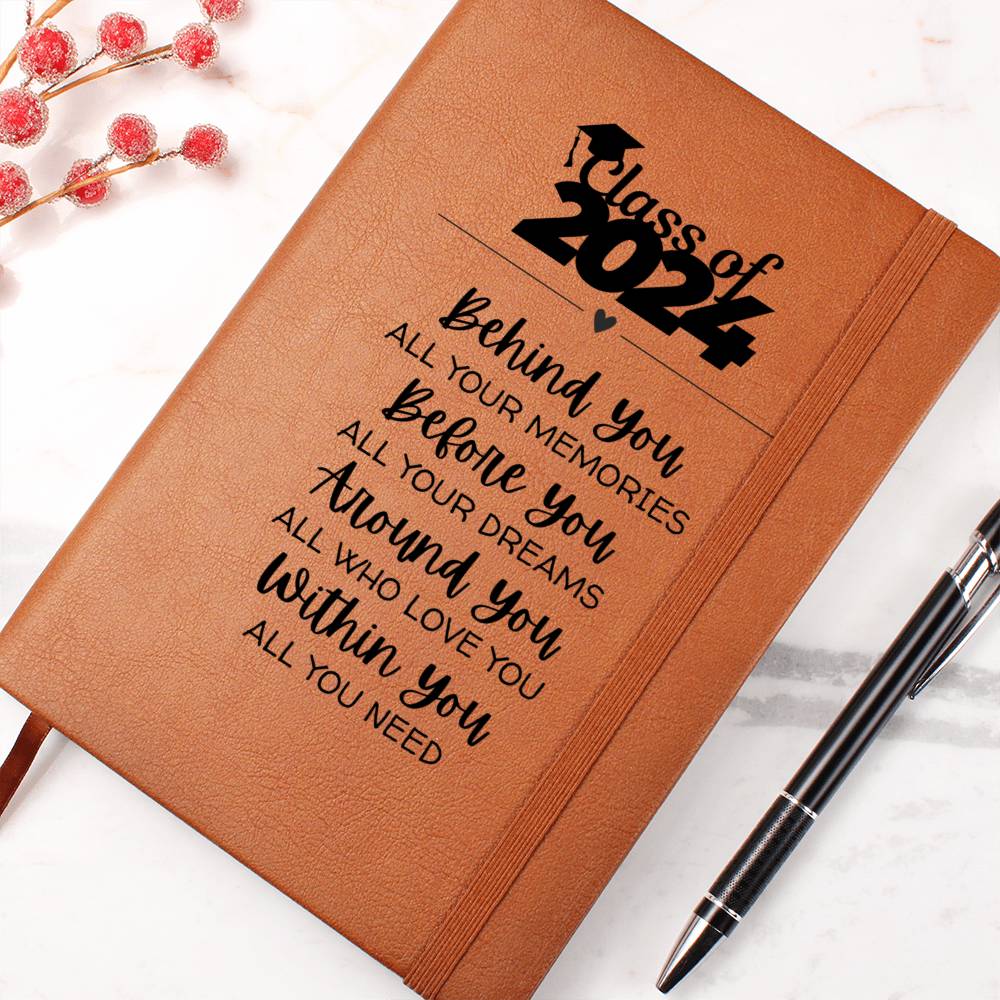 Class of
2024
Behind You
ALL YOUR MEMORIES
Before You
ALL YOUR DREAMS
Around You
ALL WHO LOVE YOU
Within You
ALL YOU NEED